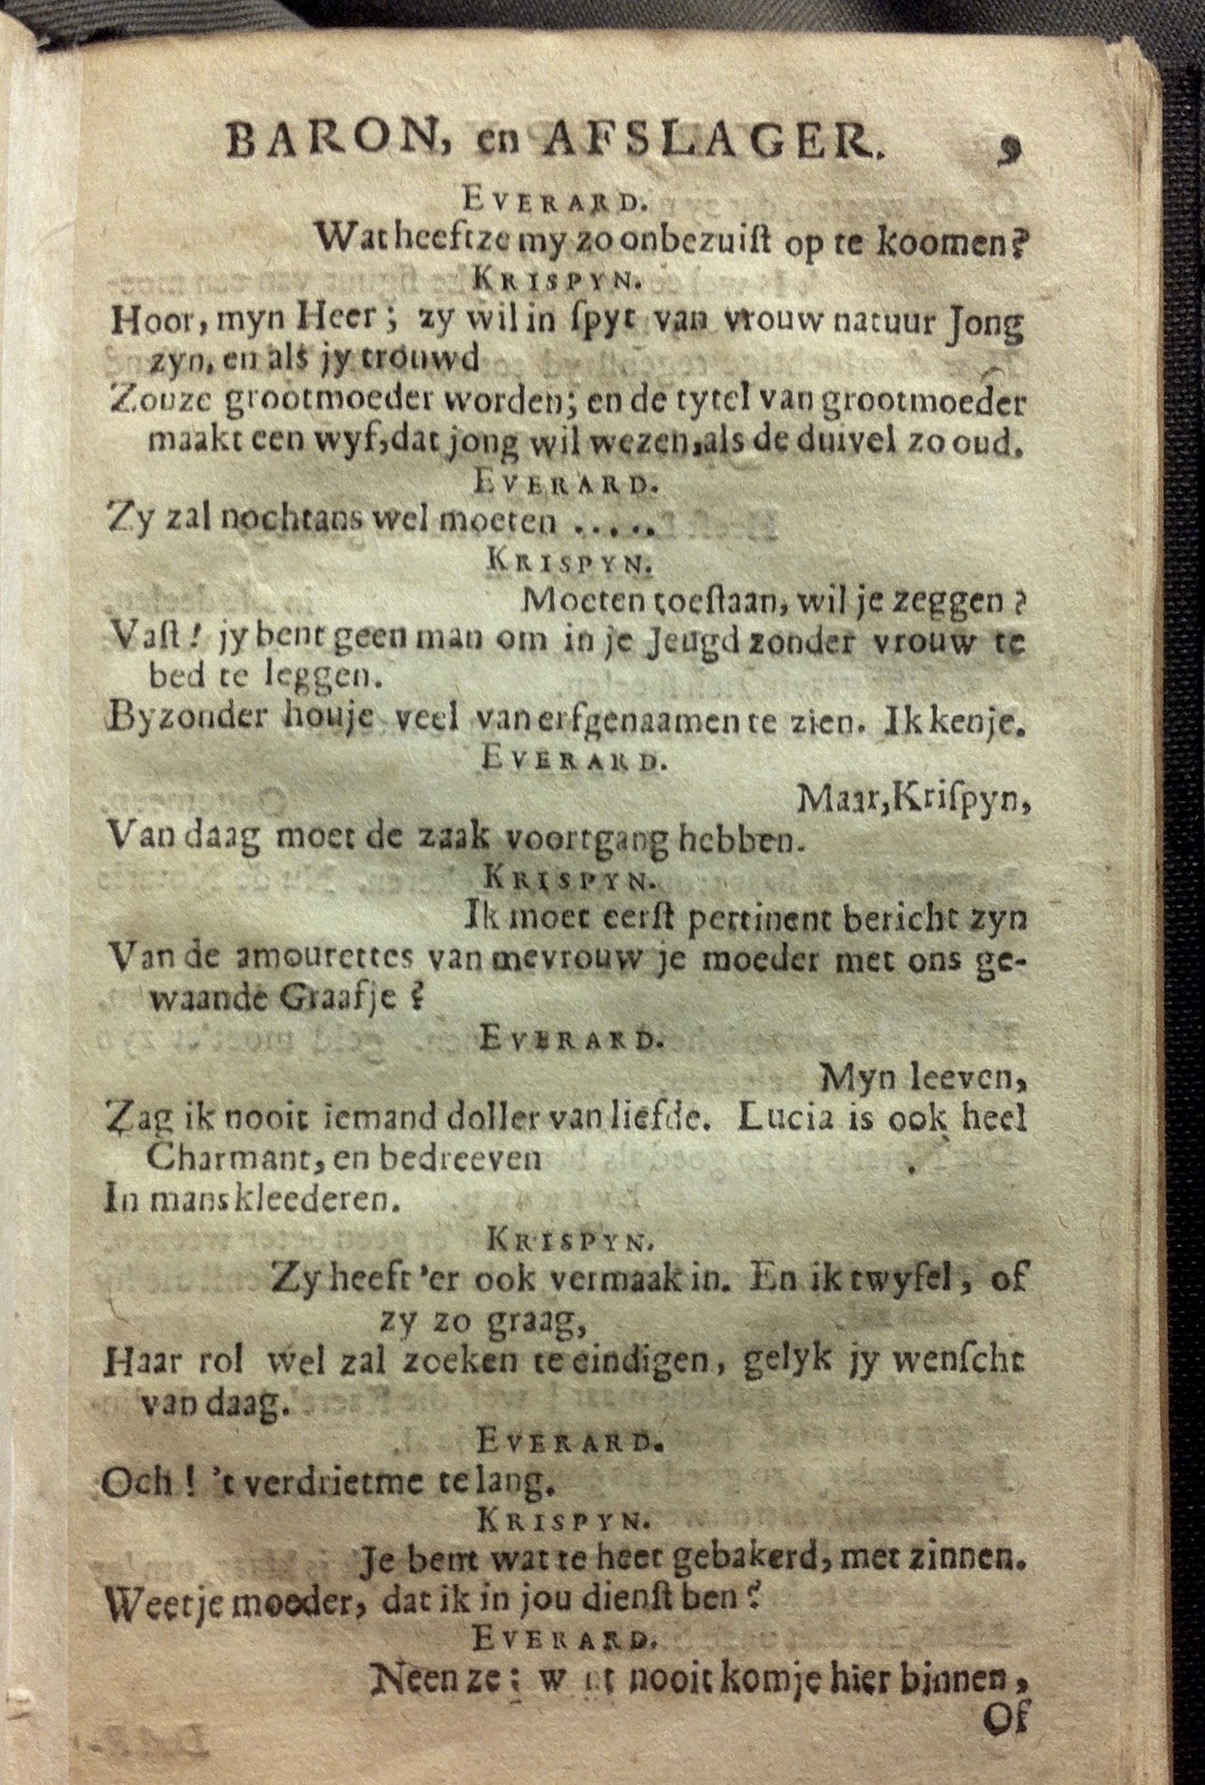 BARON, en AFSLAGER. 9
EVERARD.
Wat heeftze my zo onbezuiſt op te koomen?
KRISPYN.
Hoor, myn Heer; zy wil in ſpyt van vrouw natuur Jong
zyn, en als jy trouwd
Zouze grootmoeder worden; en de tytel van grootmoeder
maakt een wyf, dat jong wil wezen, als de duivel zo oud.
EVERARD.
Zy zal nochtans wel moeten .....
KRISPYN.
Moeten toeſtaan, wil je zeggen?
Vaſt! jy bent geen man om in je Jeugd zonder vrouw te
bed te leggen.
Byzonder houje veel van erfgenaamen te zien. Ik kenje.
EVERARD.
Maar, Kriſpyn,
Van daag moet de zaak voortgang hebben.
KRISPYN.
Ik moet eerſt pertinent bericht zyn
Van de amourettes van mevrouw je moeder met ons ge-
waande Graafje?
EVERARD.
Myn leeven,
Zag ik nooit iemand doller van liefde. Lucia is ook heel
Charmant, en bedreeven
In mans kleederen.
KRISPYN.
Zy heeft 'er ook vermaak in. En ik twyfel, of
zy zo graag,
Haar rol wel zal zoeken te eindigen, gelyk jy wenſcht
van daag.
EVERARD.
Och! 't verdrietme te lang.
KRISPYN.
Je bent wat te heet gebakerd, met zinnen.
Weetje moeder, dat ik in jou dienſt ben?
EVERARD.
Neen ze; w nt nooit komje hier binnen,
Of